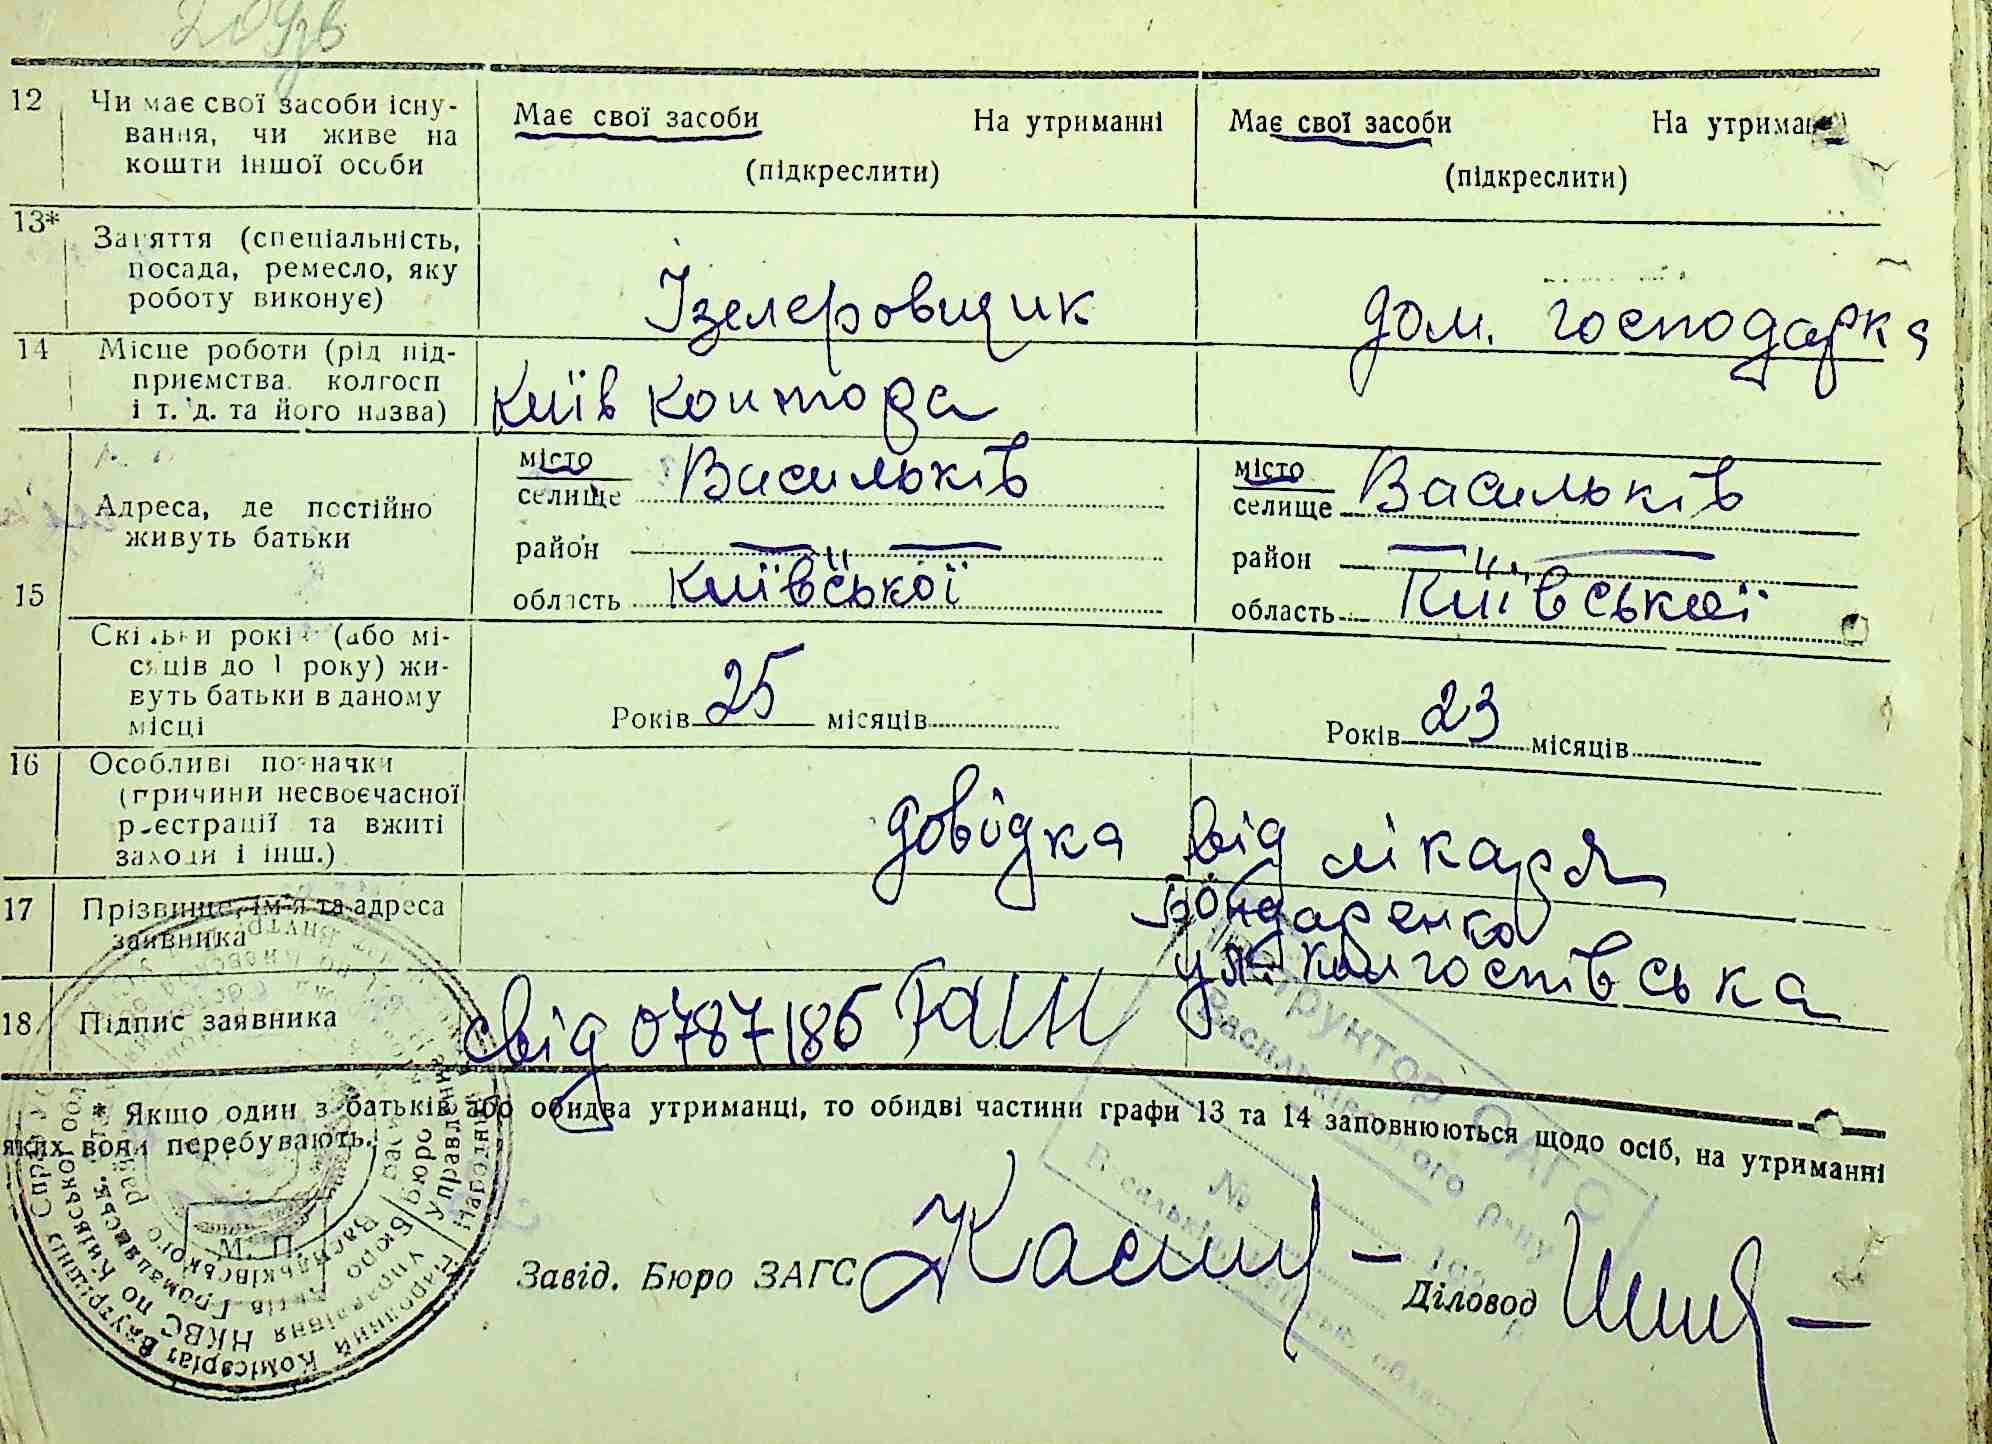 12 Чи має свої засоби існу-
вання, чи живе на
кошти іншої особи
Має свої засоби На утриманні
(підкреслити)
Має свої засоби На утриманні
(підкреслити)
13* Заняття (спеціальність,
посада, ремесло, яку
роботу виконує)
Ізелеровщик
дом. господарка
14 Місце роботи (рід під-
приємства, колгосп
і т. д. та його назва)
Київ контора
15 Адреса, де постійно
живуть батьки
місто
селище Васильків
район
область Київської
місто
селище Васильків
район
область Київської
Скільки років (або мі-
сяців до 1 року) жи-
вуть батьки в даному
місці
Років 25 місяців
Років 23 місяців
16 Особливі позначки
(причини несвоєчасної
реєстрації та вжиті
заходи і інш.)
довідка від лікаря
17 Прізвище, ім'я та адреса
заявника
Бондаренко
ул. Колгоспівська
18 Підпис заявника
свід 0787185
* Якщо один з батьків або обидва утриманці, то обидві частини графи 13 та 14 заповнюються щодо осіб, на утриманні
яких вони перебувають.
М. П.
Завід. Бюро ЗАГС
Діловод
Інструктор ОАГС
Васильківського р-ну
№